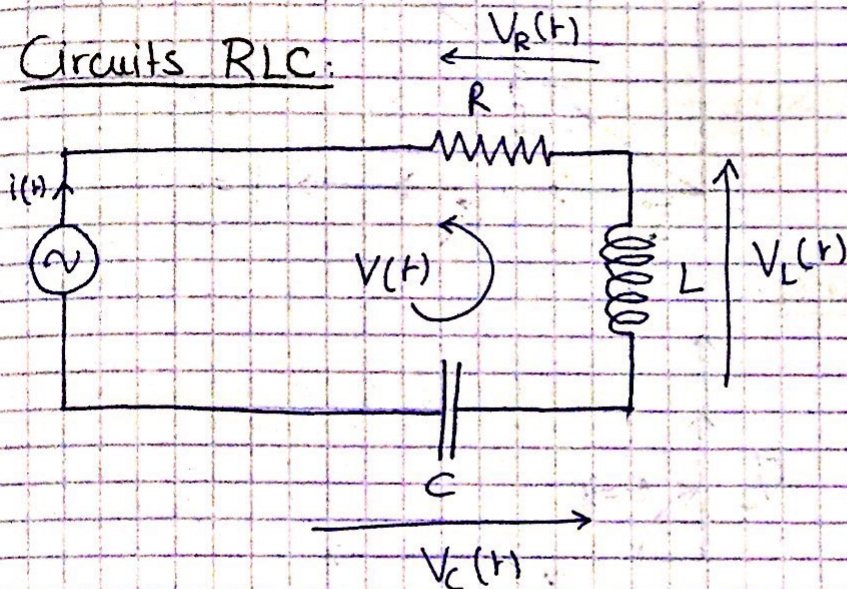 Circuits RLC:
V_R(t)
R
i(t)
V(t)
L
V_L(t)
C
V_C(t)